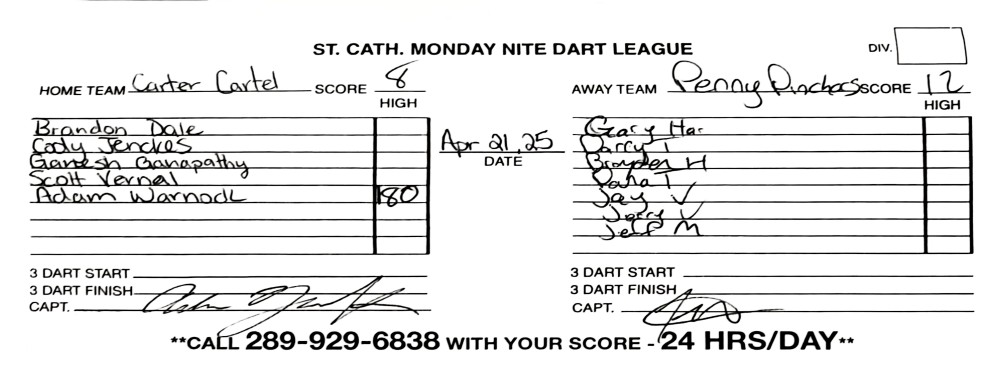 ST. CATH. MONDAY NITE DART LEAGUE
DIV.
HOME TEAM Carter Cartel SCORE 8
HIGH
AWAY TEAM Penny Pinchers SCORE 12
HIGH
Brandon Dale
Cody Jenckes
Ganesh Ganapathy
Scott Vernel
Adam Warnock 180
Apr 21, 25
DATE
Gary Har
Darry T
Brayden H
Dana T
Jay V
Jerry V
Jeff M
3 DART START
3 DART FINISH
CAPT.
3 DART START
3 DART FINISH
CAPT.
**CALL 289-929-6838 WITH YOUR SCORE - 24 HRS/DAY**